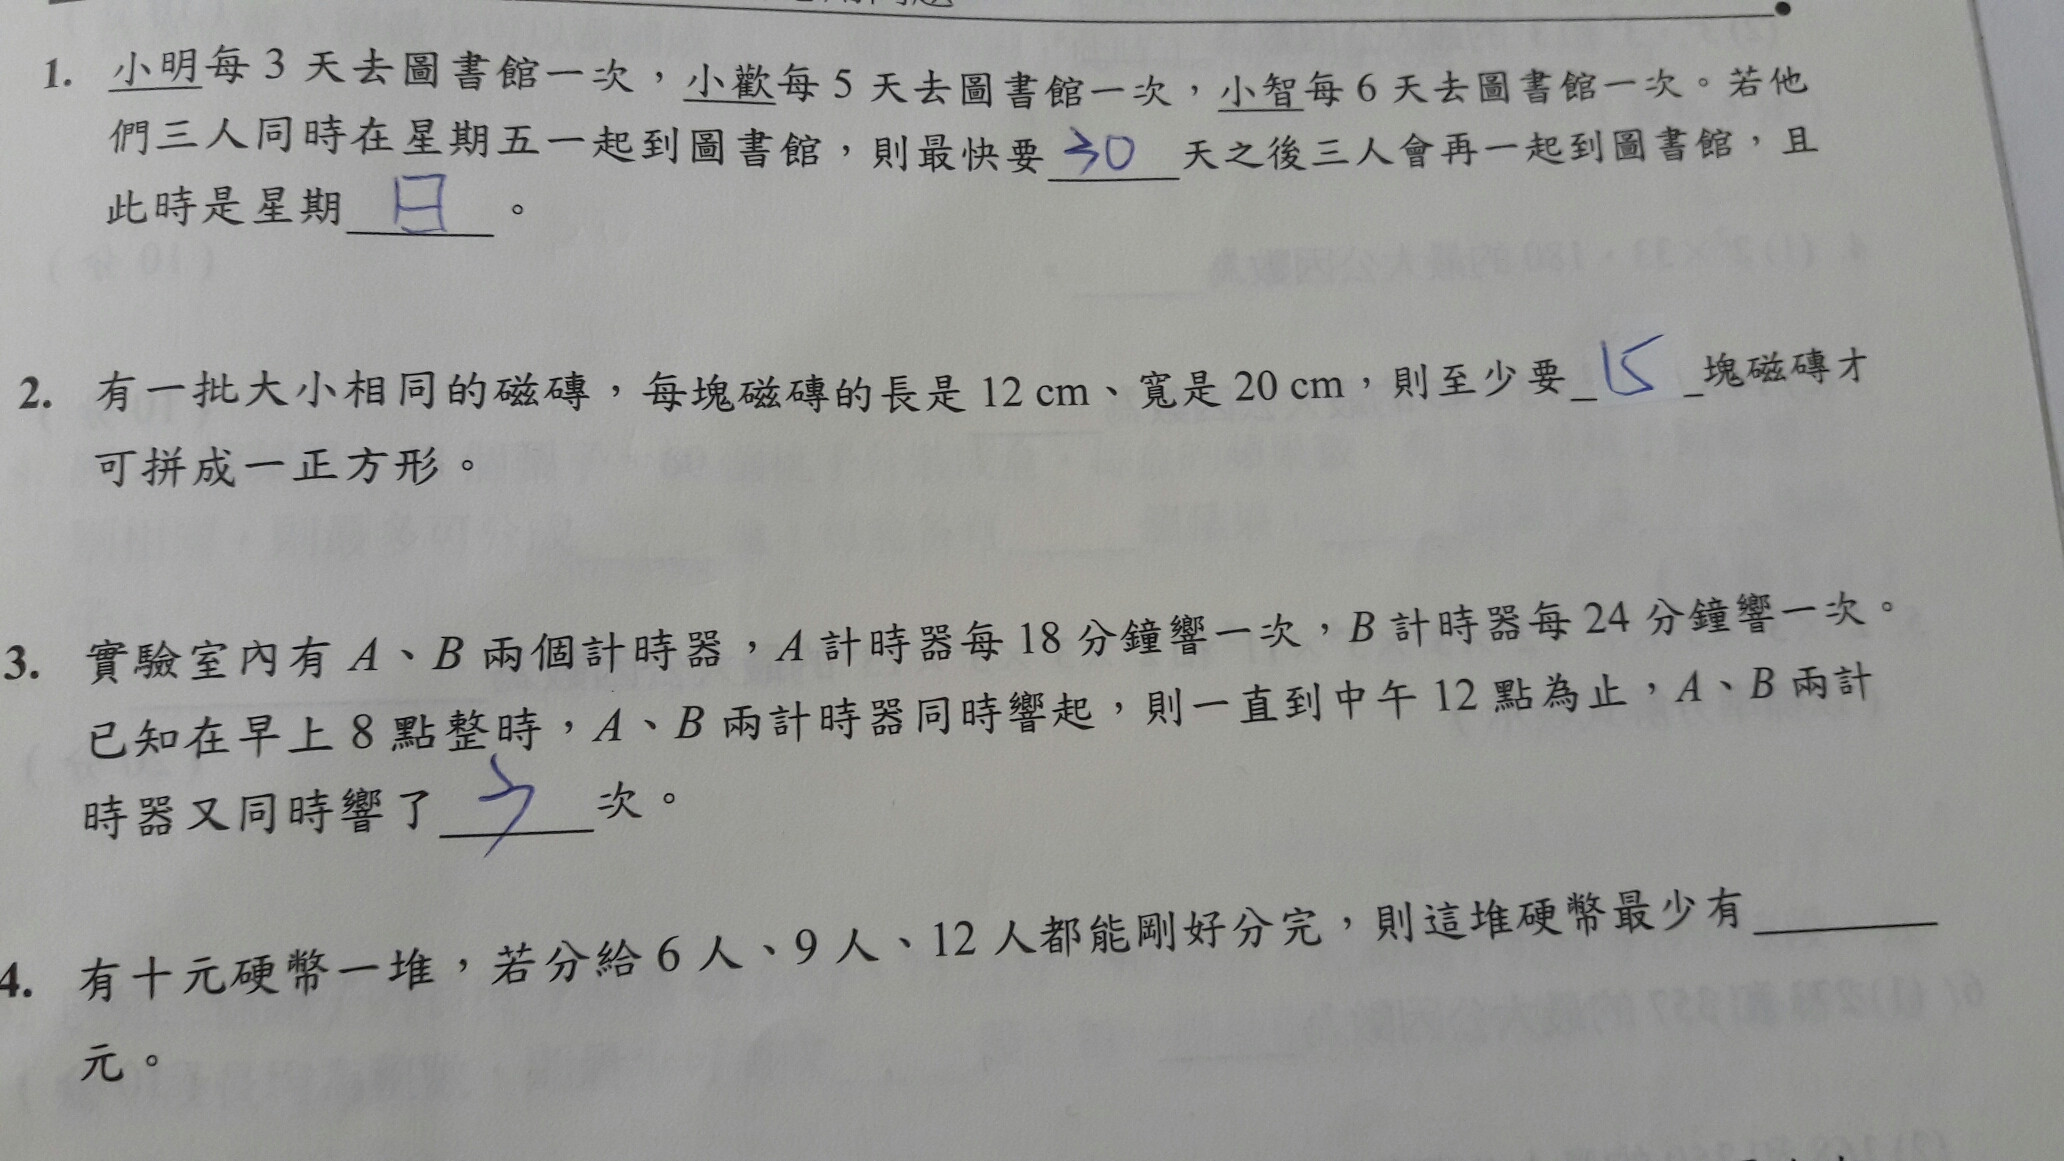 1. 小明每 3 天去圖書館一次，小歡每 5 天去圖書館一次，小智每 6 天去圖書館一次。若他
們三人同時在星期五一起到圖書館，則最快要 30 天之後三人會再一起到圖書館，且
此時是星期 日 。
2. 有一批大小相同的磁磚，每塊磁磚的長是 12 cm、寬是 20 cm，則至少要 15 塊磁磚才
可拼成一正方形。
3. 實驗室內有 A、B 兩個計時器，A 計時器每 18 分鐘響一次，B 計時器每 24 分鐘響一次。
已知在早上 8 點整時，A、B 兩計時器同時響起，則一直到中午 12 點為止，A、B 兩計
時器又同時響了 3 次。
4. 有十元硬幣一堆，若分給 6 人、9 人、12 人都能剛好分完，則這堆硬幣最少有
元。